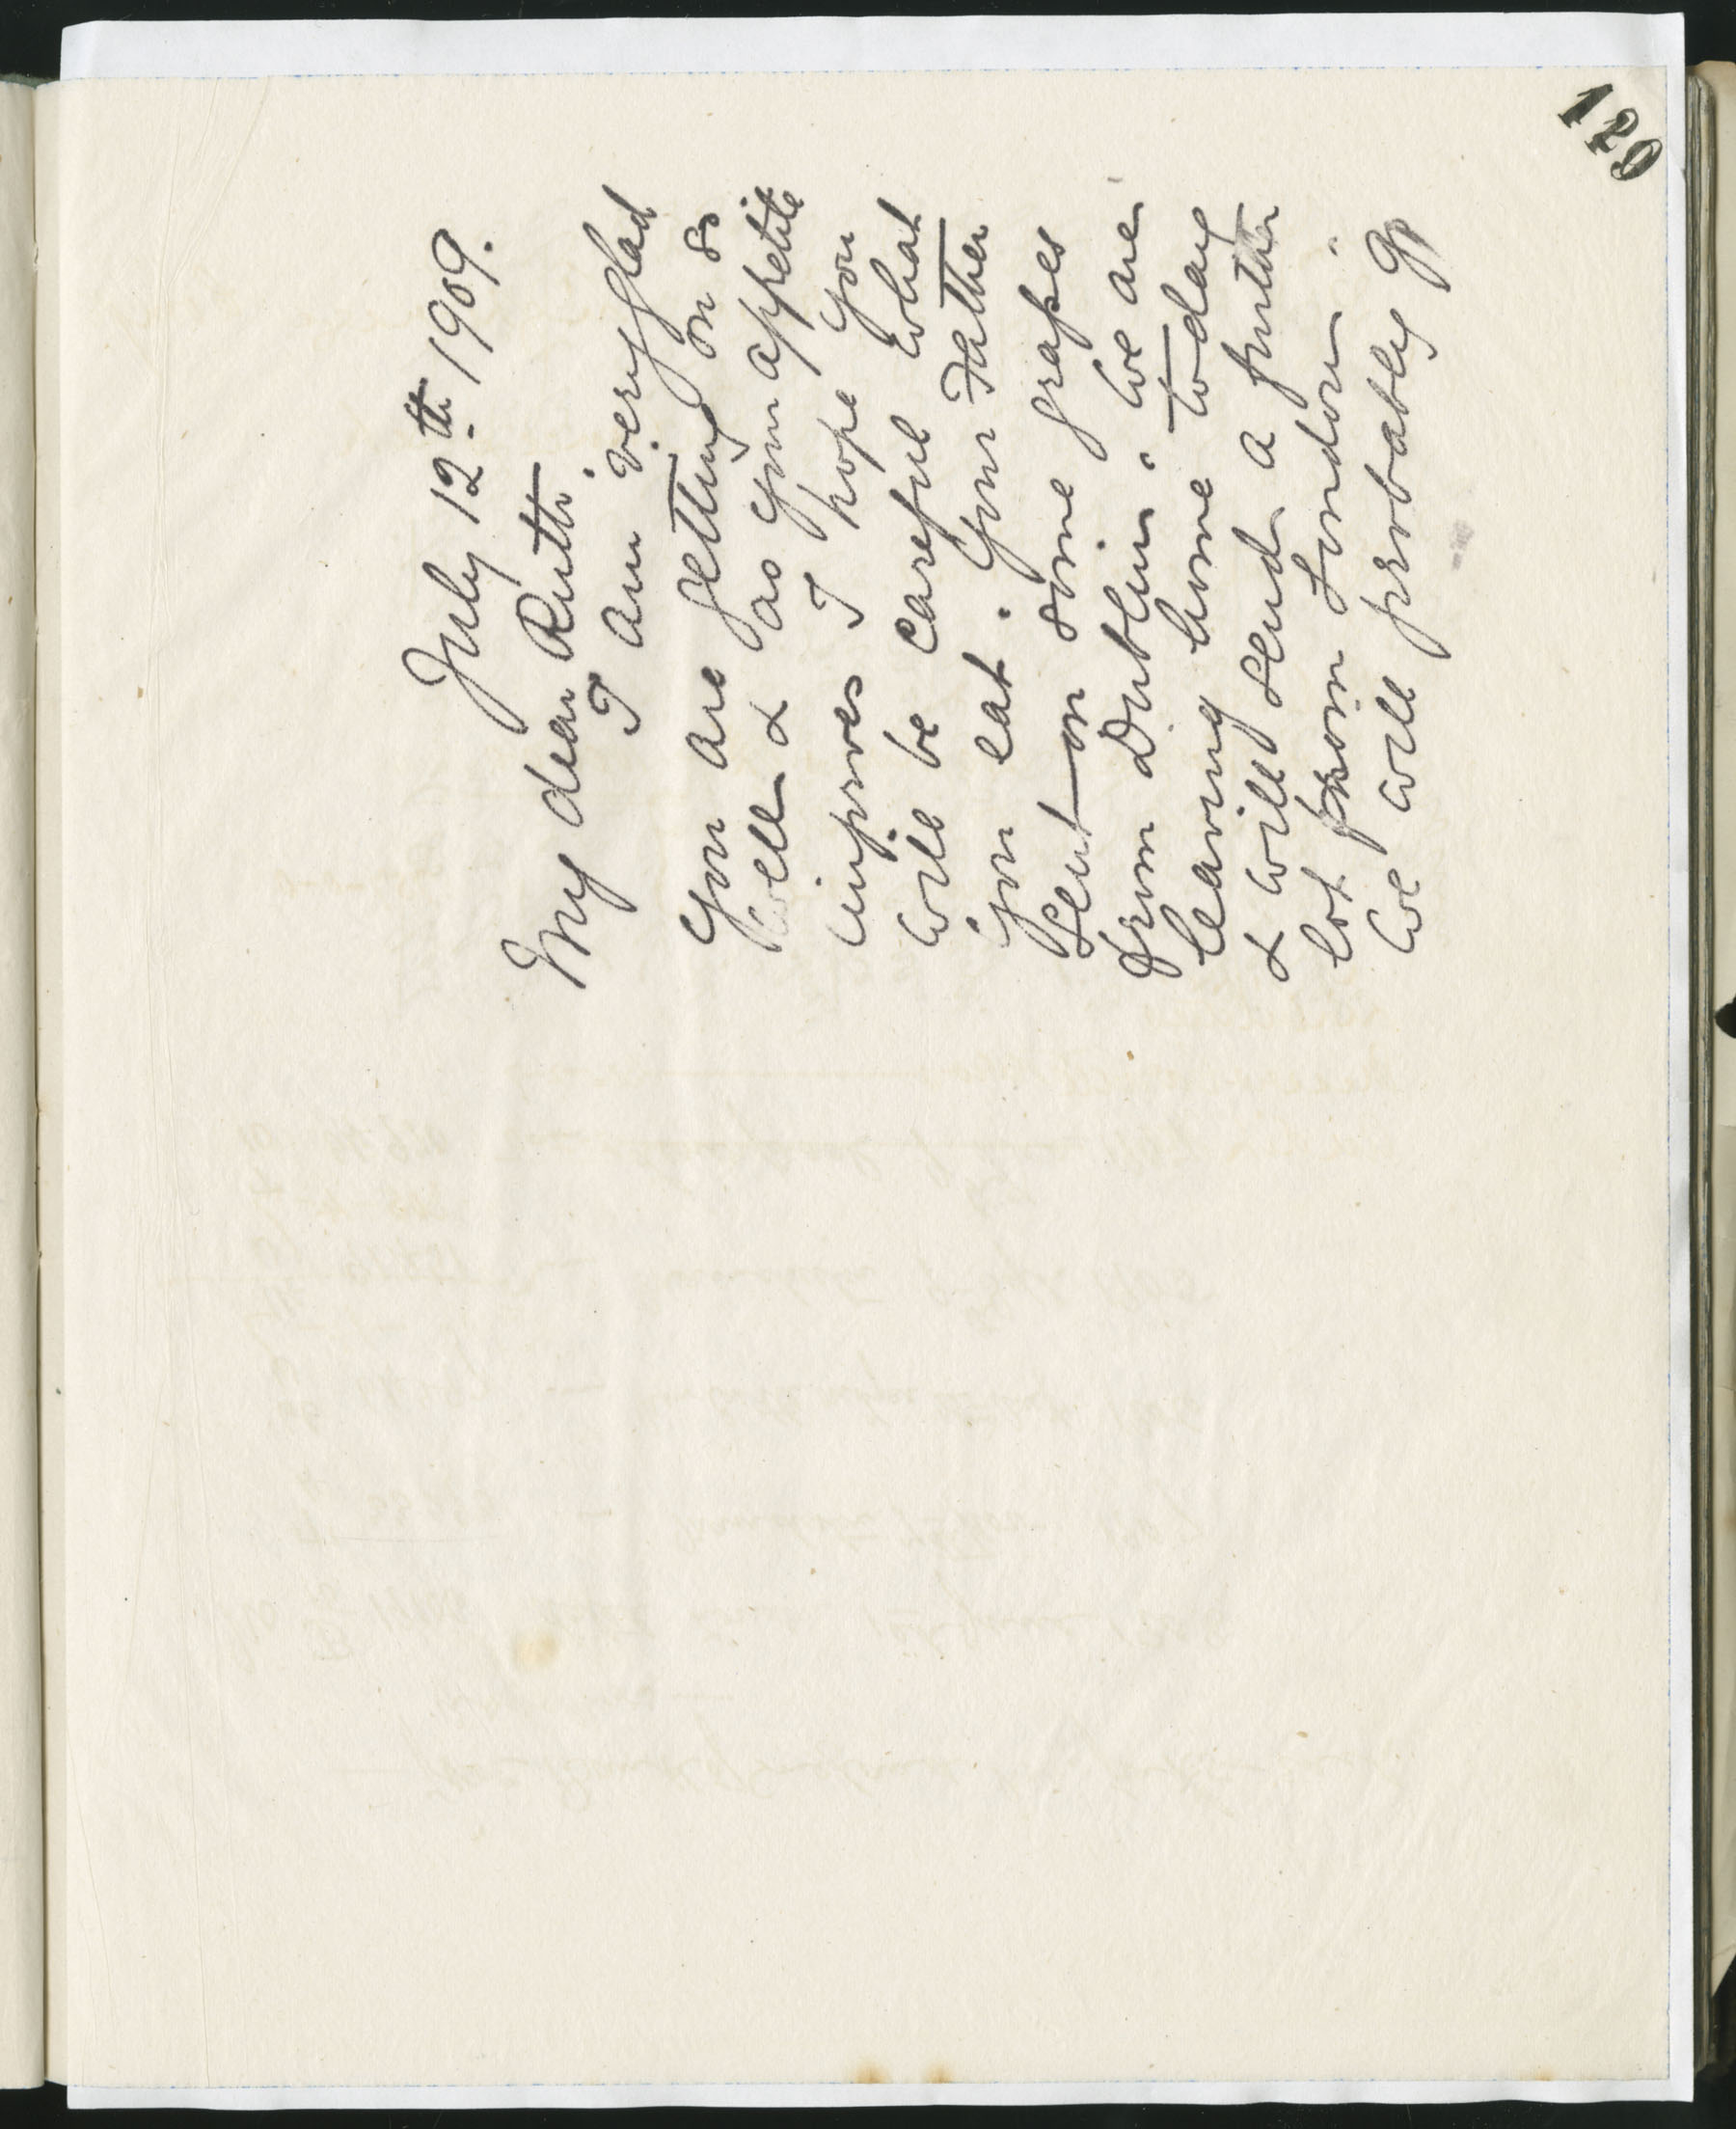 129
July 12th 1909.
My dear Ruth.
I am very glad
you are getting on so
well & as your appetite
improves I hope you
will be careful what
you eat. Your Father
sent on some grapes
from Dublin. We are
leaving home to-day
& will send a further
lot from London.
We will probably go